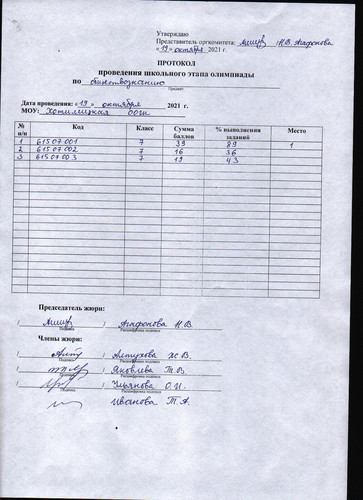 Утверждаю
Представитель оргкомитета: Н.В. Агафонова
«19» октября 2021 г.
ПРОТОКОЛ
проведения школьного этапа олимпиады
по обществознанию
Предмет
Дата проведения: «19» октября 2021 г.
МОУ: оош
№ п/п Код Класс Сумма баллов % выполнения заданий Место
1 61507001 7 39 89 1
2 61507002 7 16 36
3 61507003 7 19 43
Председатель жюри:
/ / Агафонова Н.В.
Подпись Расшифровка подписи
Члены жюри:
/ / Алтухова
Подпись Расшифровка подписи
/ / Яковлева Т.В.
Подпись Расшифровка подписи
/ / Ульянова О.И.
Подпись Расшифровка подписи
Иванова Т.А.